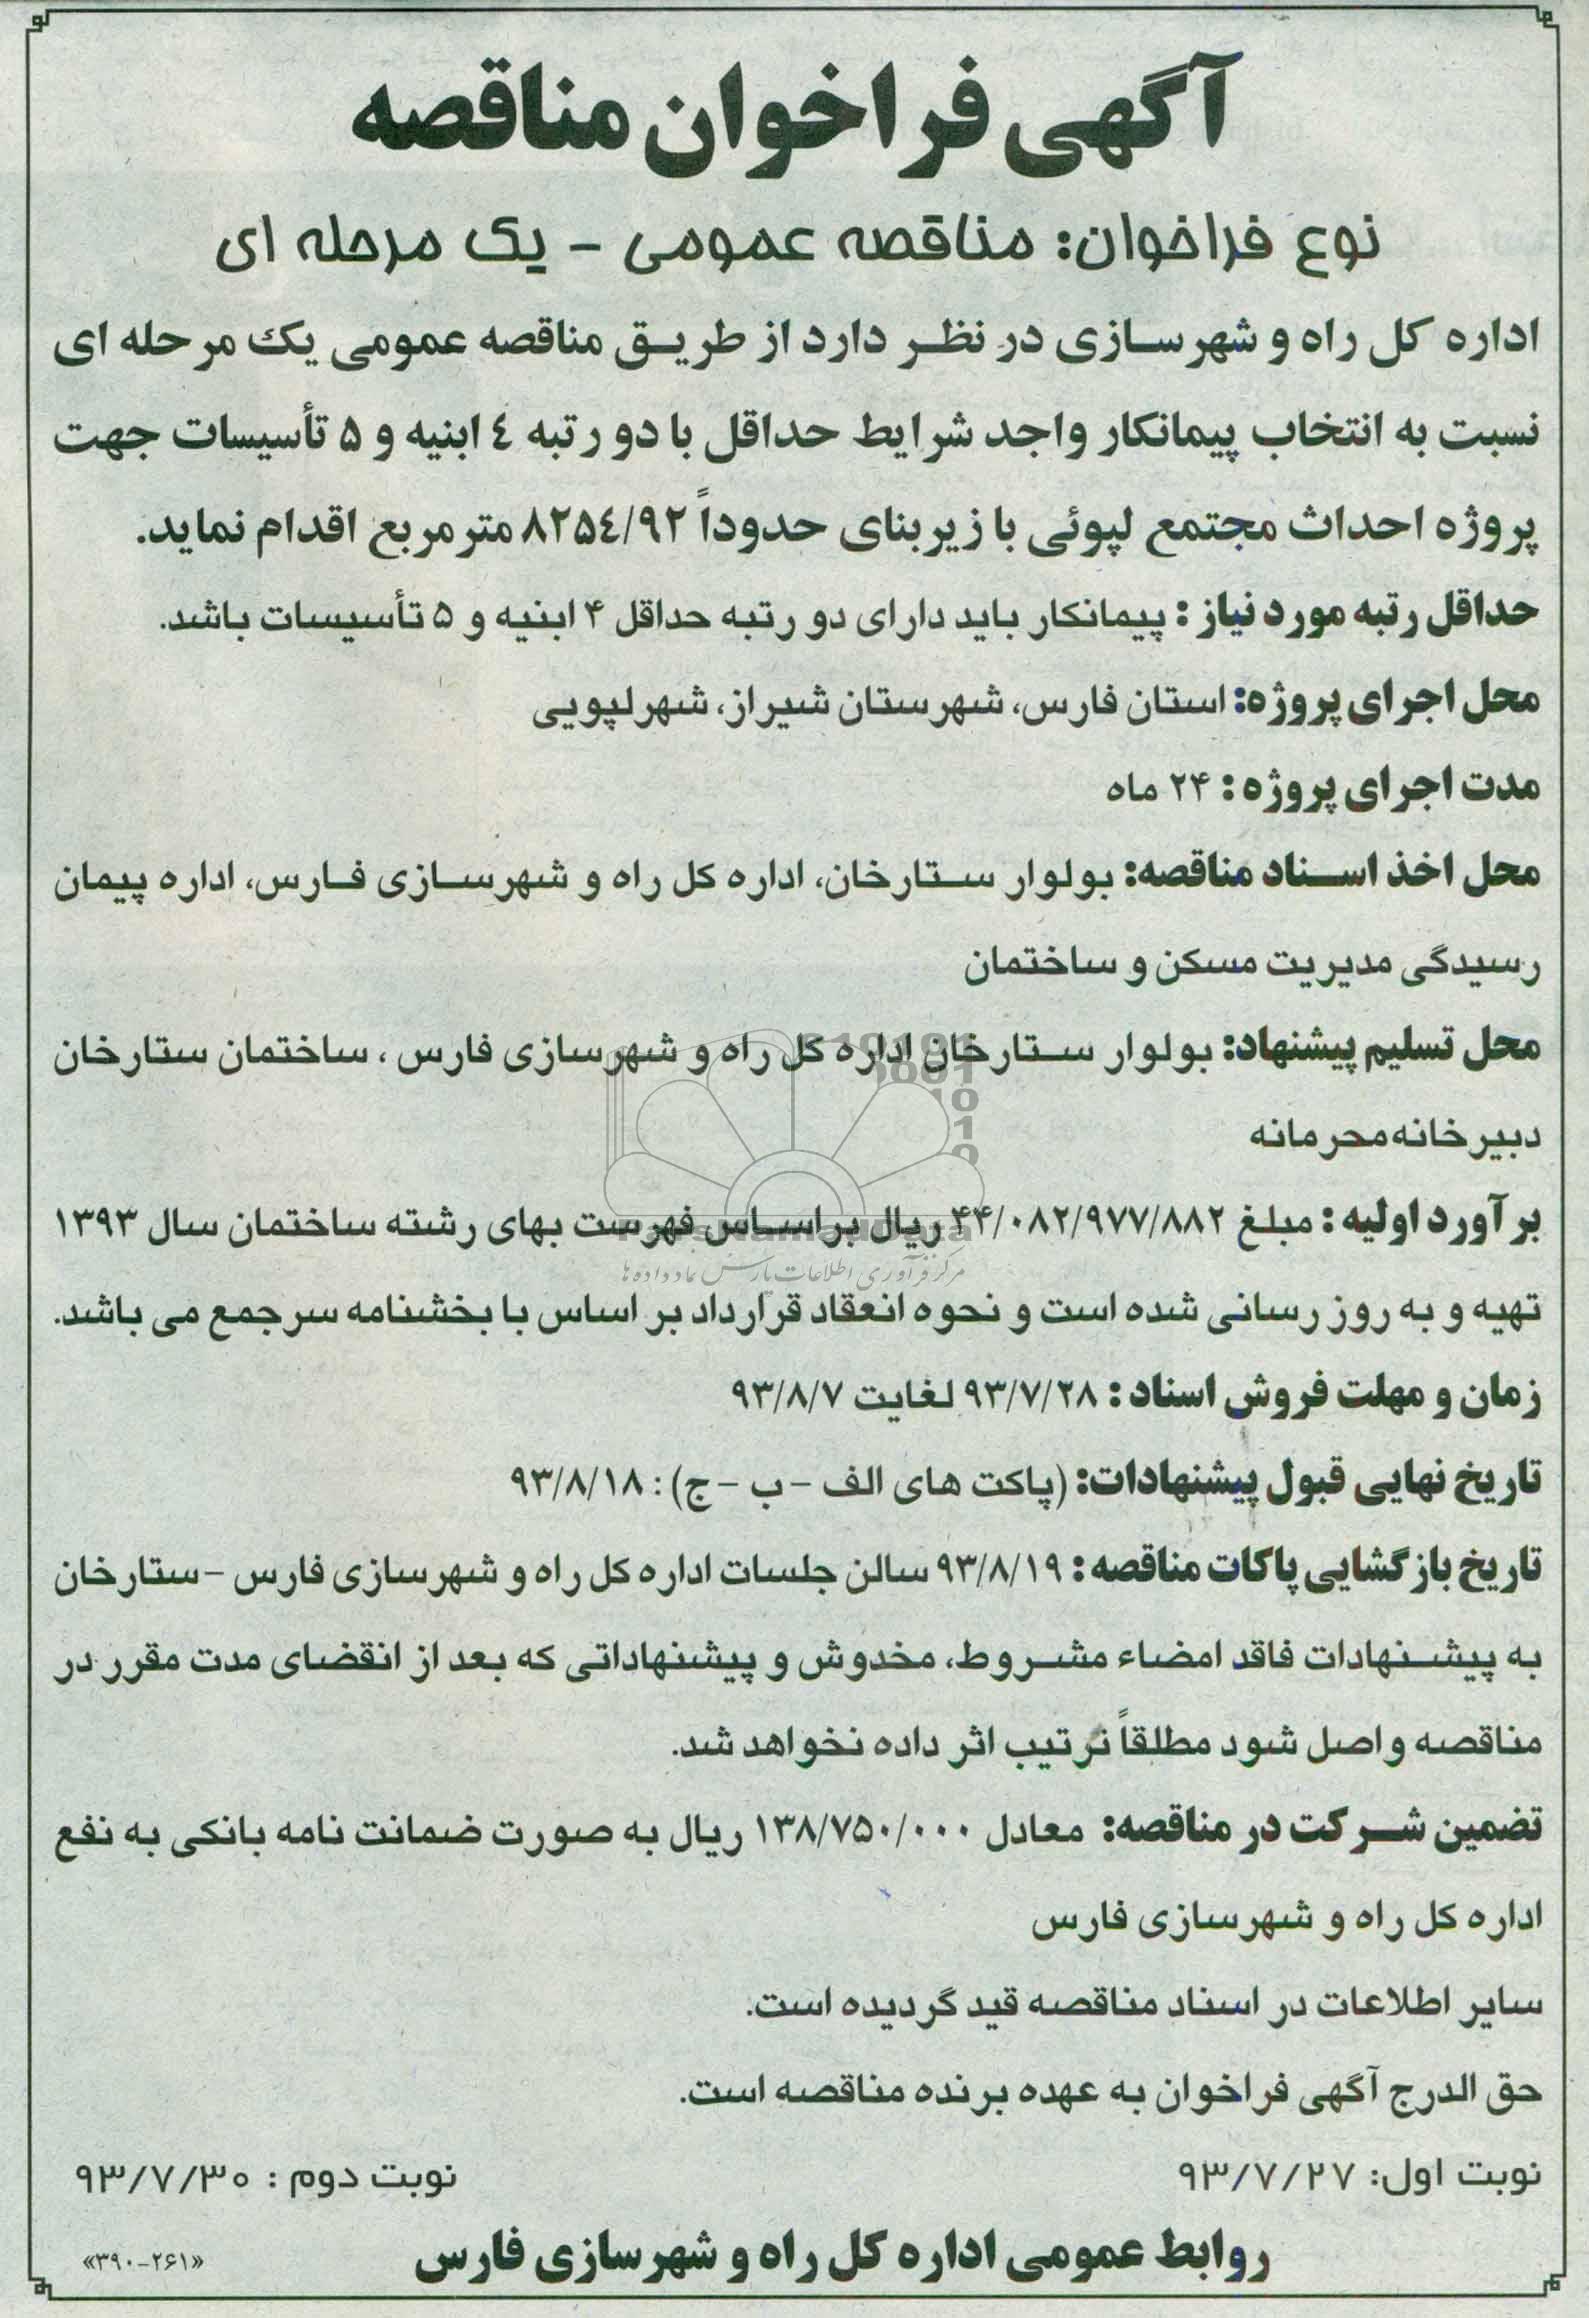 آگهی فراخوان مناقصه
نوع فراخوان: مناقصه عمومی - یک مرحله ای
اداره کل راه و شهرسازی در نظر دارد از طریق مناقصه عمومی یک مرحله ای
نسبت به انتخاب پیمانکار واجد شرایط حداقل با دو رتبه ٤ ابنیه و ۵ تأسیسات جهت
پروژه احداث مجتمع لپوئی با زیربنای حدوداً ۸۲۵٤/۹۲ متر مربع اقدام نماید.
حداقل رتبه مورد نیاز : پیمانکار باید دارای دو رتبه حداقل ۴ ابنیه و ۵ تأسیسات باشد.
محل اجرای پروژه: استان فارس، شهرستان شیراز، شهر لپویی
مدت اجرای پروژه : ۲۴ ماه
محل اخذ اسناد مناقصه: بولوار ستارخان، اداره کل راه و شهرسازی فارس، اداره پیمان
رسیدگی مدیریت مسکن و ساختمان
محل تسلیم پیشنهاد: بولوار ستارخان اداره کل راه و شهرسازی فارس ، ساختمان ستارخان
دبیرخانه محرمانه
برآورد اولیه : مبلغ ۴۴/۰۸۲/۹۷۷/۸۸۲ ریال براساس فهرست بهای رشته ساختمان سال ۱۳۹۳
مرکز فرآوری اطلاعات پارس نماد داده ها
تهیه و به روز رسانی شده است و نحوه انعقاد قرارداد بر اساس با بخشنامه سرجمع می باشد.
زمان و مهلت فروش اسناد : ۹۳/۷/۲۸ لغایت ۹۳/۸/۷
تاریخ نهایی قبول پیشنهادات: (پاکت های الف - ب - ج) : ۹۳/۸/۱۸
تاریخ بازگشایی پاکات مناقصه : ۹۳/۸/۱۹ سالن جلسات اداره کل راه و شهرسازی فارس - ستارخان
به پیشنهادات فاقد امضاء مشروط، مخدوش و پیشنهاداتی که بعد از انقضای مدت مقرر در
مناقصه واصل شود مطلقاً ترتیب اثر داده نخواهد شد.
تضمین شرکت در مناقصه: معادل ۱۳۸/۷۵۰/۰۰۰ ریال به صورت ضمانت نامه بانکی به نفع
اداره کل راه و شهرسازی فارس
سایر اطلاعات در اسناد مناقصه قید گردیده است.
حق الدرج آگهی فراخوان به عهده برنده مناقصه است.
نوبت اول: ۹۳/۷/۲۷ نوبت دوم : ۹۳/۷/۳۰
روابط عمومی اداره کل راه و شهرسازی فارس
«۳۹۰-۲۶۱»